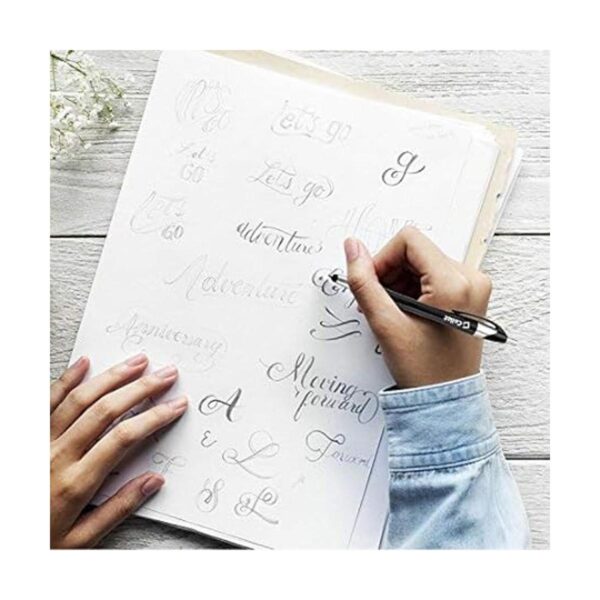 Let's go
Let's
GO
g
Let's go
Let's
GO
adventure
Adventure
Anniversary
Moving
forward
A
L
Forward
S
L